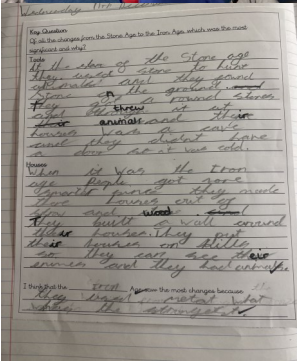 Wednesday
Key Question
Of all the changes from the Stone Age to the Iron Age, which was the most
significant and why?
Tools
of the Stone age
they used Stone to
and they found
Stone on the ground
They round stones
and threw it at
animals and their
houses was a cave
and they didn't have
a door so it was cold.
Houses
When it was the Iron
age People got more
smarter they made
there houses out of
and wood
They built a wall around
their houses. They put
their houses on hills
so they can see their
enemies and they had
I think that the Age saw the most changes because
they used metal what
was the strongest